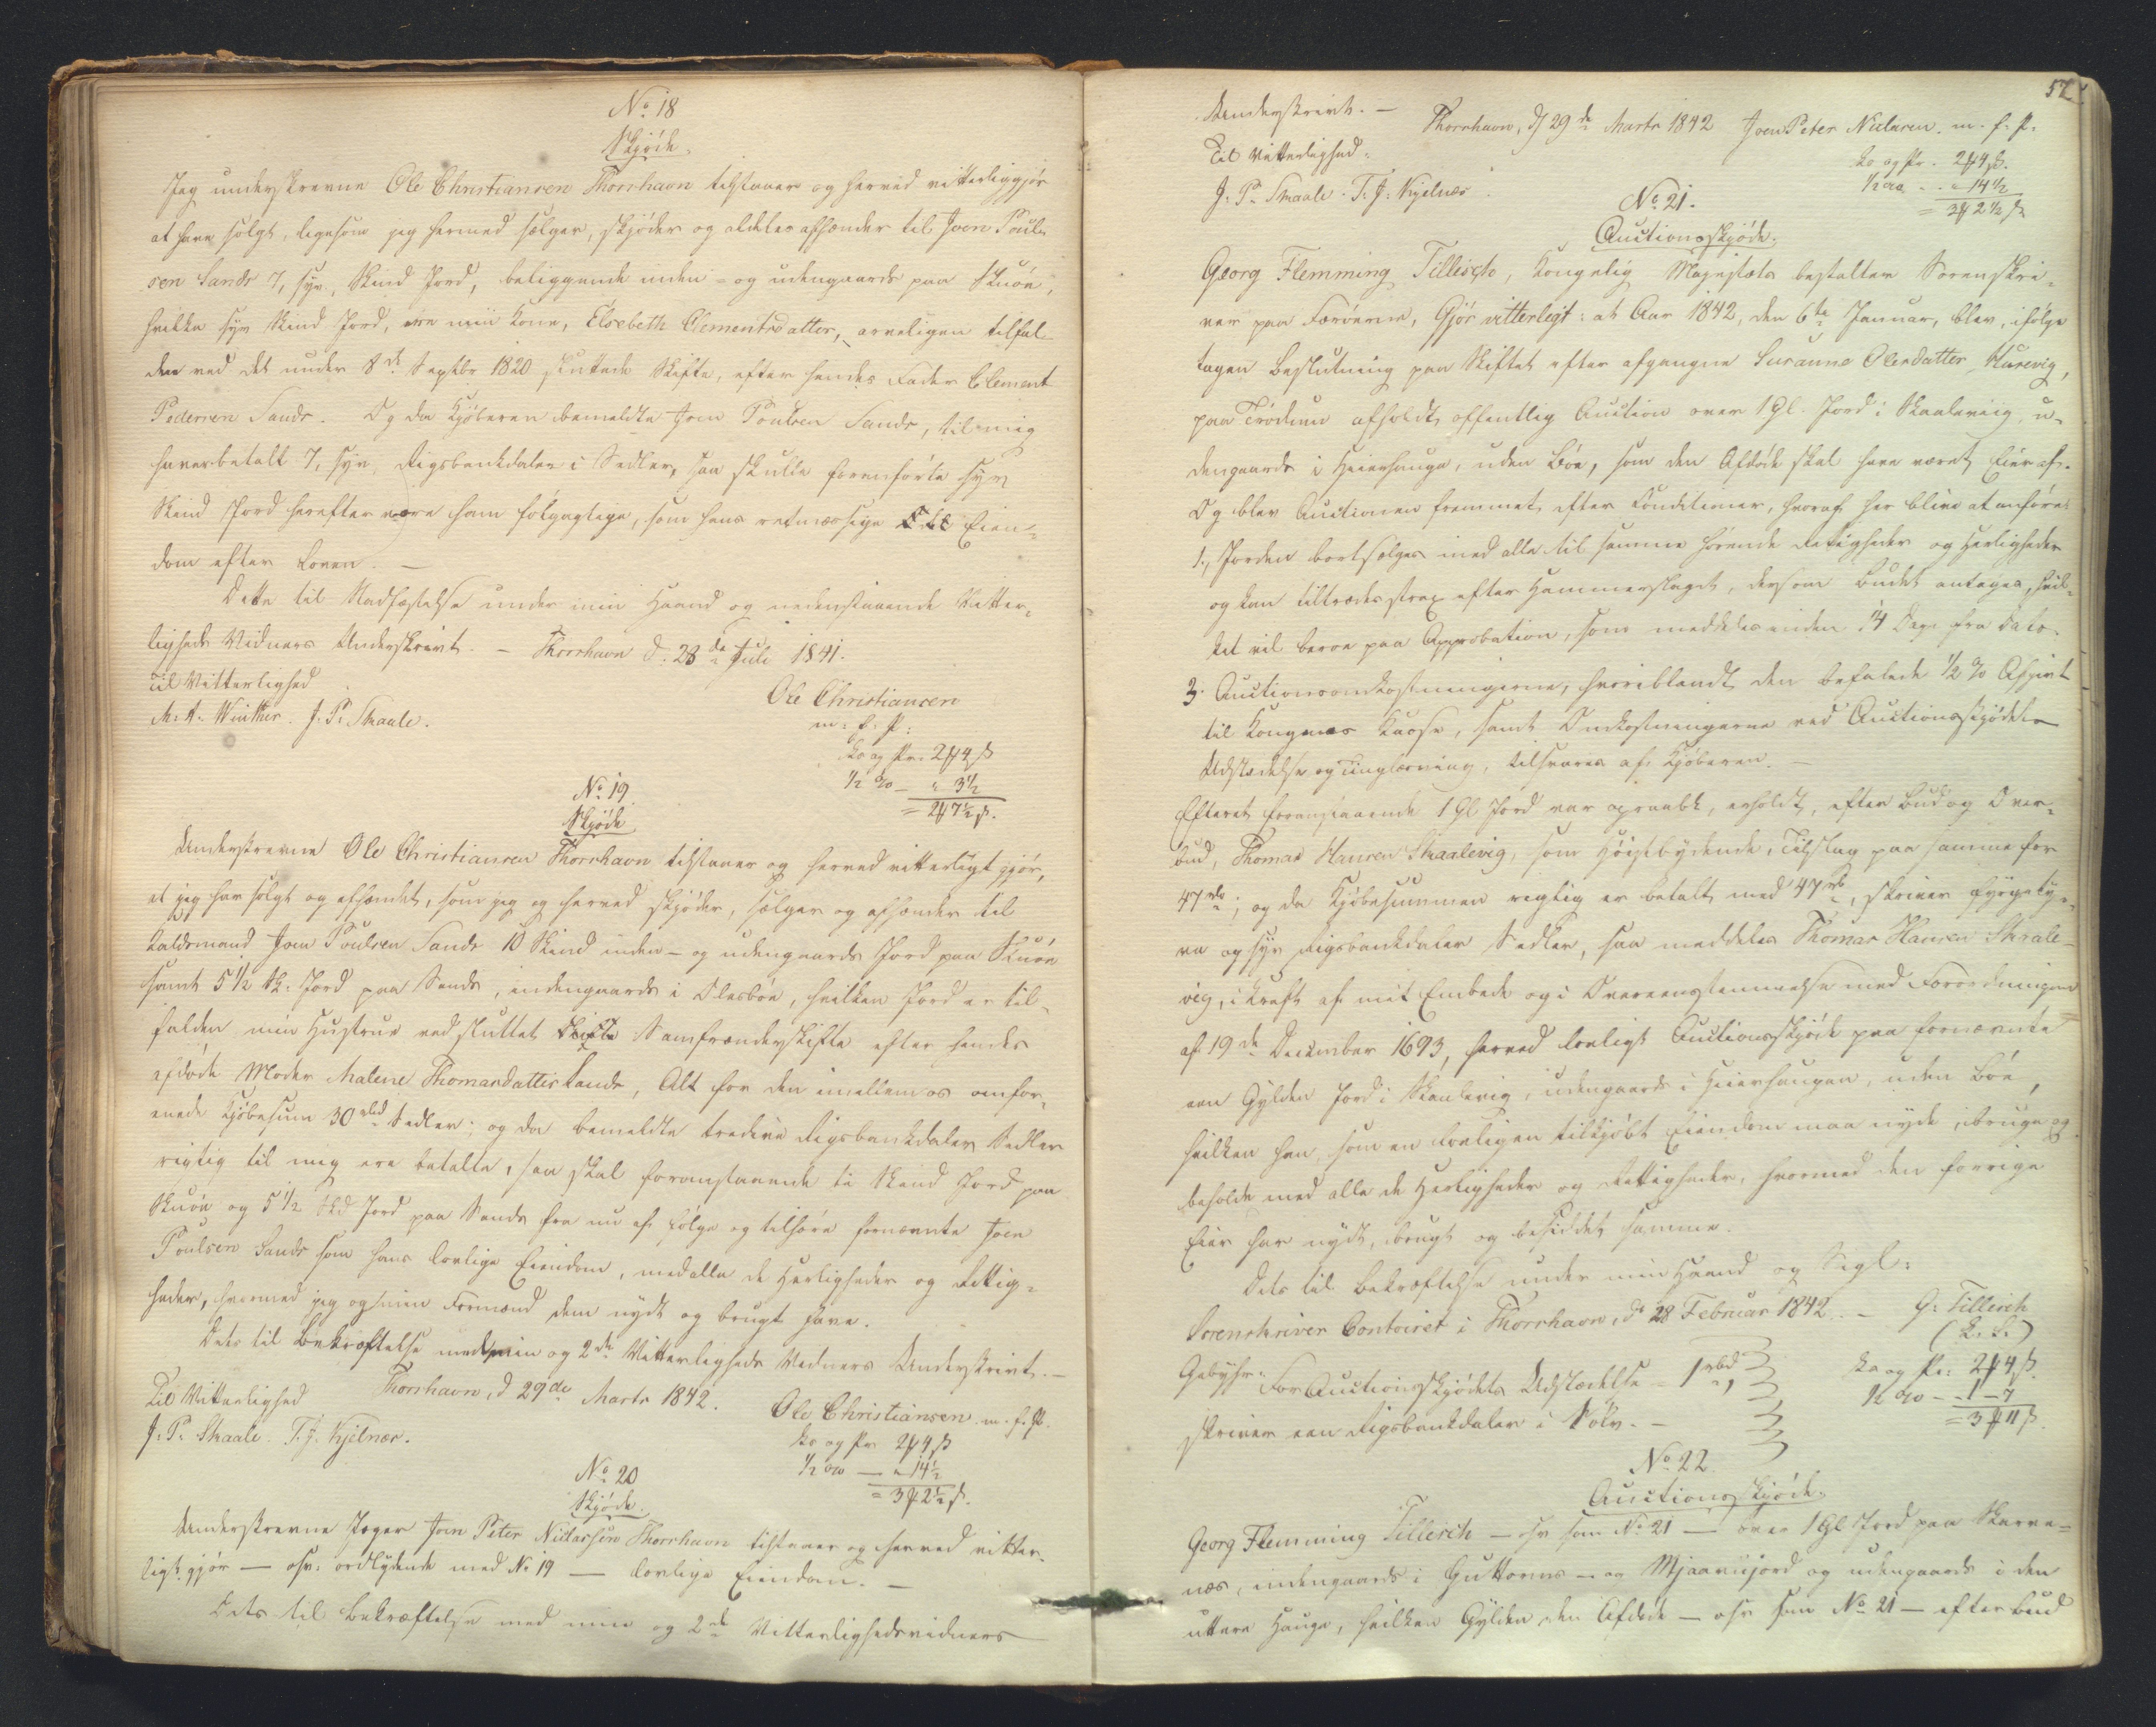 No 18
Skjöde.
Jeg underskrevne Ole Christiansen Thorshavn tilstaaer og herved vitterliggjør
at have solgt, ligesom jeg hermed sælger, skjöder og aldeles afhænder til Joen Poul-
sen Sands 7, syv, Skind Jord, beliggende inden- og udengaards paa Skuöe,
hvilke syv Skind Jord, ere min Kone, Elsebeth Clementsdatter, arveligen tilfal-
den ved det under 8de Septbr 1820 sluttede Skifte, efter hendes Fader Clement
Pedersen Sands. Og da Kjöberen bemeldte Joen Poulsen Sands, til mig
haver betalt 7, syv, Rigsbankdaler i Sedler, saa skulle forenförte syv
Skind Jord herefter være ham fölgagtige, som hans retmæssige Odel Eien-
dom efter Loven. —
Dette til Stadfæstelse under min Haand og nedenstaaende Vitter-
ligheds Vidners Underskrivt. — Thorshavn d: 28de Juli 1841.
Til Vitterlighed
Ole Christiansen
M. A. Winther. J. P. Skaale.
m: f: P:
½ %
No 19
Skjöde
Underskrevne Ole Christiansen Thorshavn tilstaaer og herved vitterligt gjör,
at jeg har solgt og afhændet, som jeg og herved skjöder, sælger og afhænder til
Kaldsmand Joen Poulsen Sands 10 Skind inden- og udengaards Jord paa Skuöe
samt 5 1/2 Sk: Jord paa Sands, indengaards i Olesböe, hvilken Jord er til-
falden min Hustrue ved sluttet Samfrænderskifte efter hendes
afdöde Moder Malene Thomasdatter Sands, Alt for den imellem os omfor-
enede Kjöbesum 30 rbd Sedler; og da bemeldte tredive Rigsbankdaler Sedler
rigtig til mig ere betalte, saa skal foranstaaende ti Skind Jord paa
Skuöe og 5 1/2 Skd Jord paa Sands fra nu af fölge og tilhöre fornævnte Joen
Poulsen Sands som hans lovlige Eiendom, med alle de Herligheder og Rettig-
heder, hvormed jeg og min Formænd dem nydt og brugt have.
Dets til Bekræftelse med min og 2de Vitterligheds Vidners Underskrivt. —
Til Vitterlighed Thorshavn, d 29de Marts 1842.
Ole Christiansen. m. f. P.
J. P. Skaale. T. J. Kjelnæs.
½ % — 14½
No 20
Skjöde.
Underskrevne Jæger Joen Peter Niclassen Thorshavn tilstaaer og herved vitter-
ligt gjör — osv: ordlydende med No 19 — lovlige Eiendom. —
Dets til Bekræftelse med min og 2de Vitterlighedsvidners
57
Underskrivt. — Thorshavn, d 29de Marts 1842 Joen Peter Niclasen. m. f. P.
Til Vitterlighed:
J. P. Skaale. T. J. Kjelnæs.
No 21.
Auctionsskjöde.
Georg Flemming Tillisch, Kongelig Majestæts bestalter Sorenskri-
ver paa Færöerne, Gjör vitterligt: at Aar 1842, den 6te Januar, blev, ifölge
tagen Beslutning paa Skiftet efter afgangne Susanne Olesdatter Husevig,
paa Trödum afholdt offentlig Auction over 1 Gl. Jord i Skaalevig, u-
dengaards i Heierhauge, uden Böe, som den Afdöde skal have været Eier af.
Og blev Auctionen fremmet efter Conditioner, hvoraf her blive at anföre:
1., Jorden bortsælges med alle til samme hörende Rettigheder og Herligheder
og kan tiltrædes strax efter Hammerslaget, dersom Budet antages, hvil-
ket vil beroe paa Approbation, som meddeles inden 14 Dage fra Dato.
3. Auctionsomkostningerne, hvoriblandt den befalede 1/2 % Afgivt
til Kongens Kasse, samt Omkostningerne ved Auctionsskjödets
Udstædelse og Tinglæsning, tilsvares af Kjöberen. —
Efterat foranstaaende 1 Gl Jord var opraabt, erholdt, efter Bud og Over-
bud, Thomas Hansen Skaalevig, som Höistbydende, Tilslag paa samme for
47 rb; og da Kjöbesummen rigtig er betalt med 47 rb, skriver fyrgety-
ve og syv Rigsbankdaler Sedler, saa meddeles Thomas Hansen Skaale-
vig, i Kraft af mit Embede og i Overeensstemmelse med Forordningen
af 19de December 1693, herved lovligt Auctionsskjöde paa fornævnte
een Gylden Jord i Skaalevig, udengaards i Heierhaugen, uden Böe,
hvilken han, som en lovligen tilkjöbt Eiendom maa nyde, bruge og
beholde med alle de Herligheder og Rettigheder, hvormed den forrige
Eier har nydt, brugt og besiddet samme.
Dets til Bekræftelse under min Haand og Segl:
Sorenskriver Contoiret i Thorshavn, d: 28 Februar 1842. — G: Tillisch
(L. S.)
Gebyhr: For Auctionsskjödets Udstædelse — 1 rbd,
skriver een Rigsbankdaler i Sölv. —
No 22
Auctionsskjöde.
Georg Flemming Tillisch — osv som No 21 — over 1 Gl Jord paa Skarve-
næs, indengaards i Guttorms- og Mjaavujord og udengaards i den
uttere Hauge, hvilken Gylden den Afdöde — osv som No 21 — efter Bud